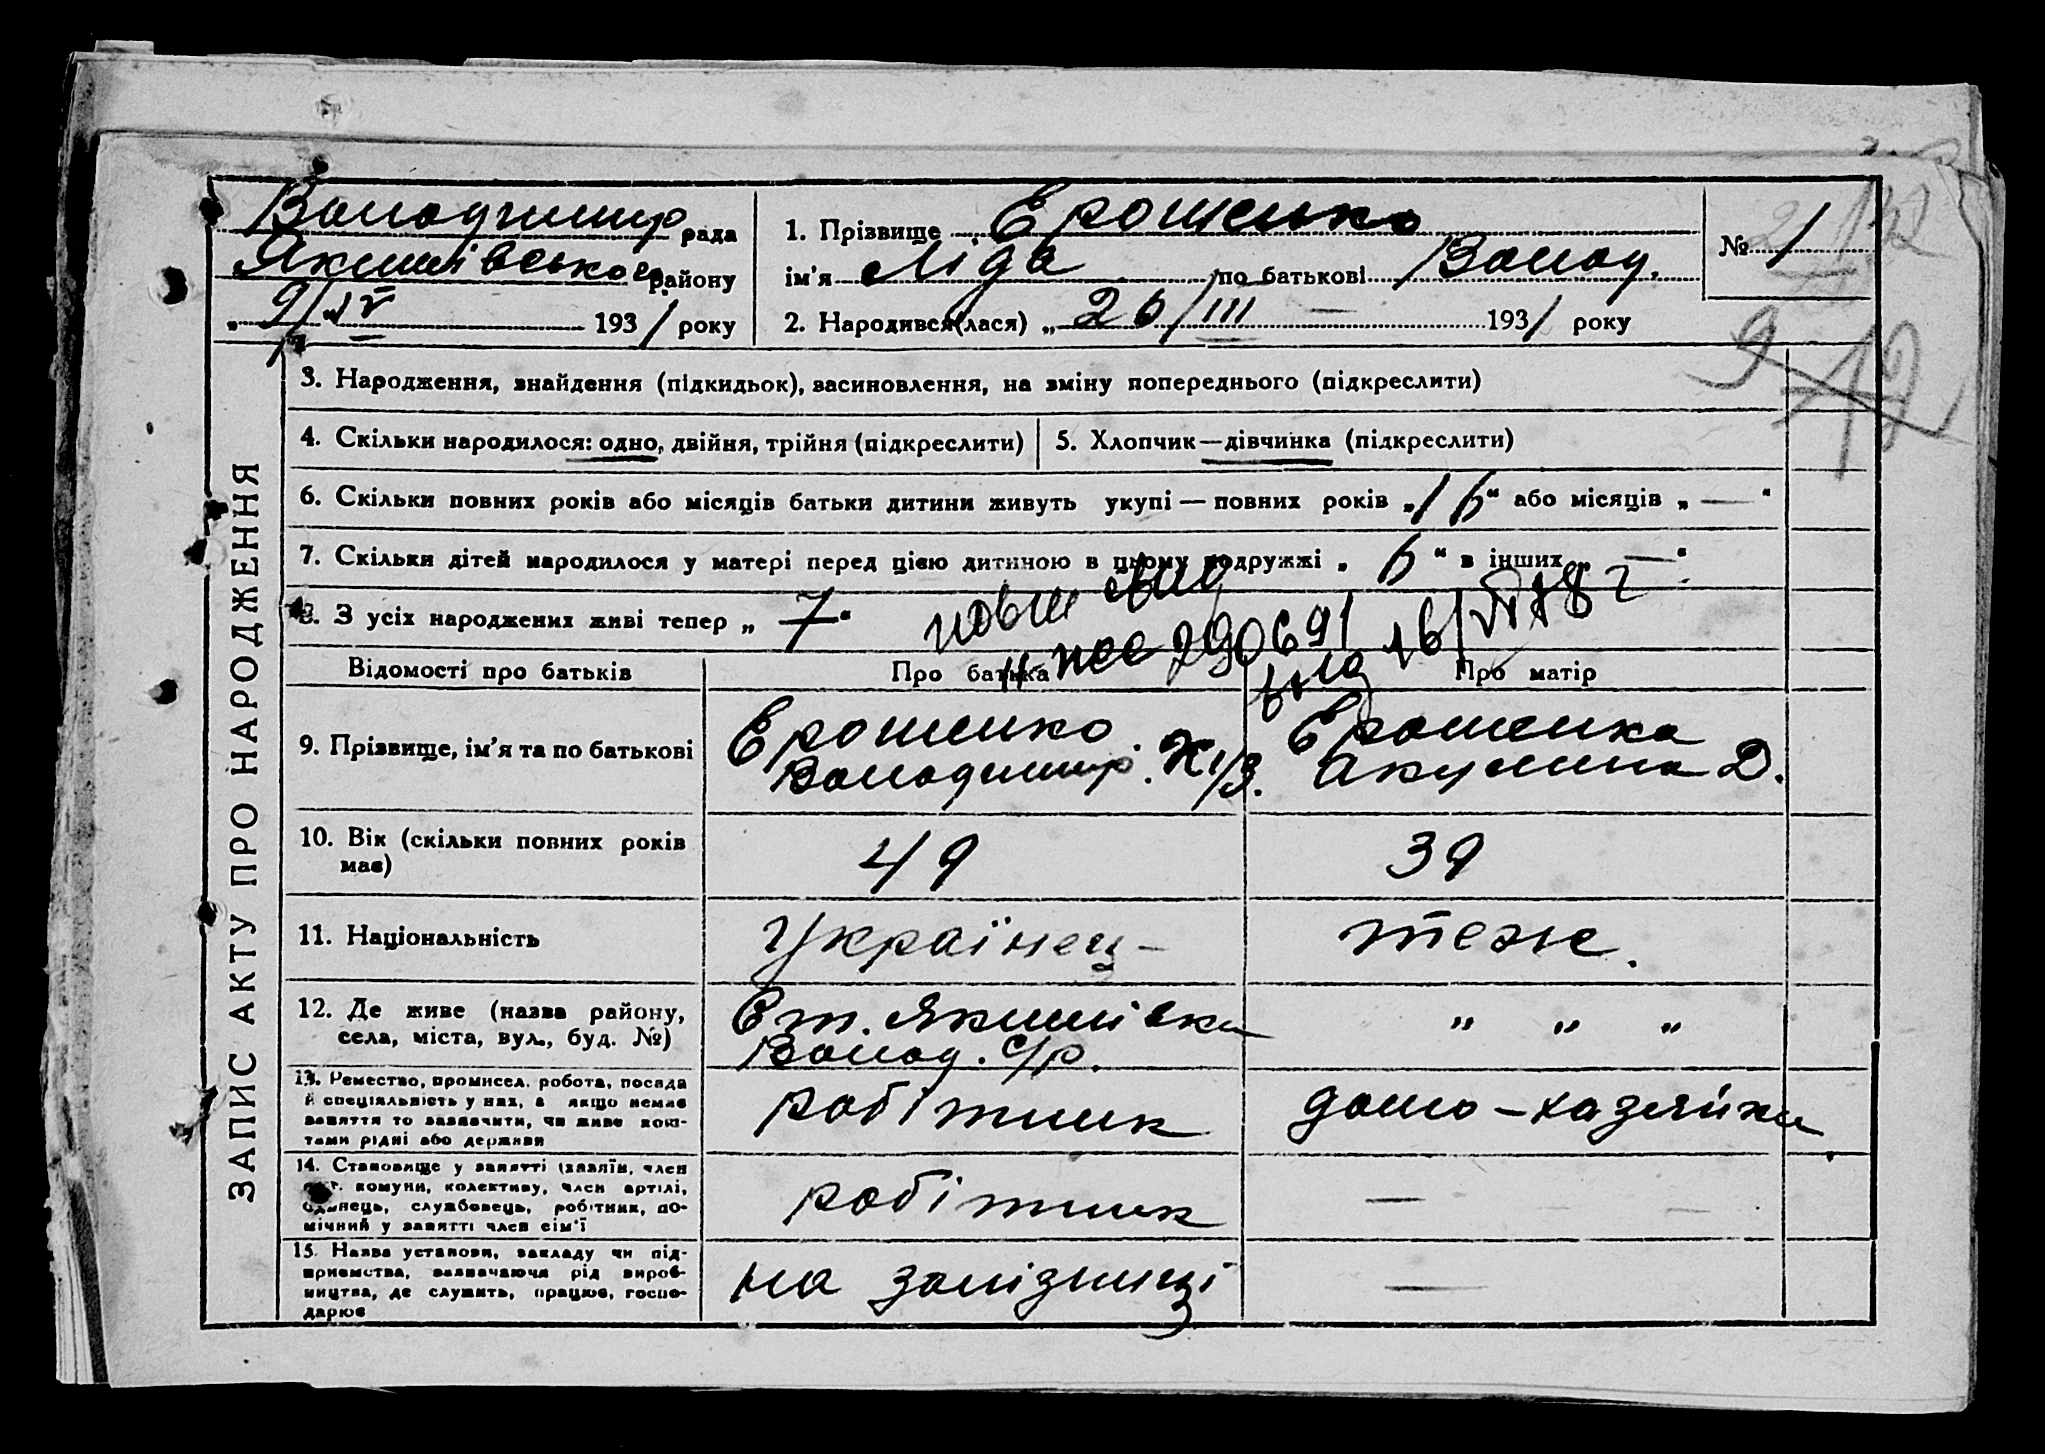 Володимир рада
Якимівського району
„ 9/IV 1931 року
1. Прізвище Ерошенко
ім'я Ліда по батькові Волод.
2. Народився(лася) „ 26/III — 1931 року
№ 1
ЗАПИС АКТУ ПРО НАРОДЖЕННЯ
3. Народження, знайдення (підкидьок), засиновлення, на зміну попереднього (підкреслити)
4. Скільки народилося: одно, двійня, трійня (підкреслити)
5. Хлопчик—дівчинка (підкреслити)
6. Скільки повних років або місяців батьки дитини живуть укупі — повних років „16“ або місяців „ — “
7. Скільки дітей народилося у матері перед цією дитиною в цьому подружжі „ 6 “ в інших „ — “
8. З усіх народжених живі тепер „ 7 “
290691
Відомості про батьків
Про батька
Про матір
9. Прізвище, ім'я та по батькові
Ерошенко
Володимир.
Ерошенка
Акулина Д.
10. Вік (скільки повних років має)
49
39
11. Національність
Українец
теж.
12. Де живе (назва району,
села, міста, вул., буд. №)
Ст. Якимівка
Волод. с/р.
„ „ „
13. Ремество, промисел, робота, посада
й спеціяльність у них, а якщо немає
заняття то зазначити, чи живе кош-
тами рідні або держави
робітник
домо-хазяйка
14. Становище у занятті (хазяїн, член
комуни, колективу, член артілі,
одинець, службовець, робітник, по-
мічний у занятті член сім'ї
робітник
—
15. Назва установи, закладу чи під-
приємства, зазначаючи рід вироб-
ництва, де служить, працює, госпо-
дарює
на залізниці
—